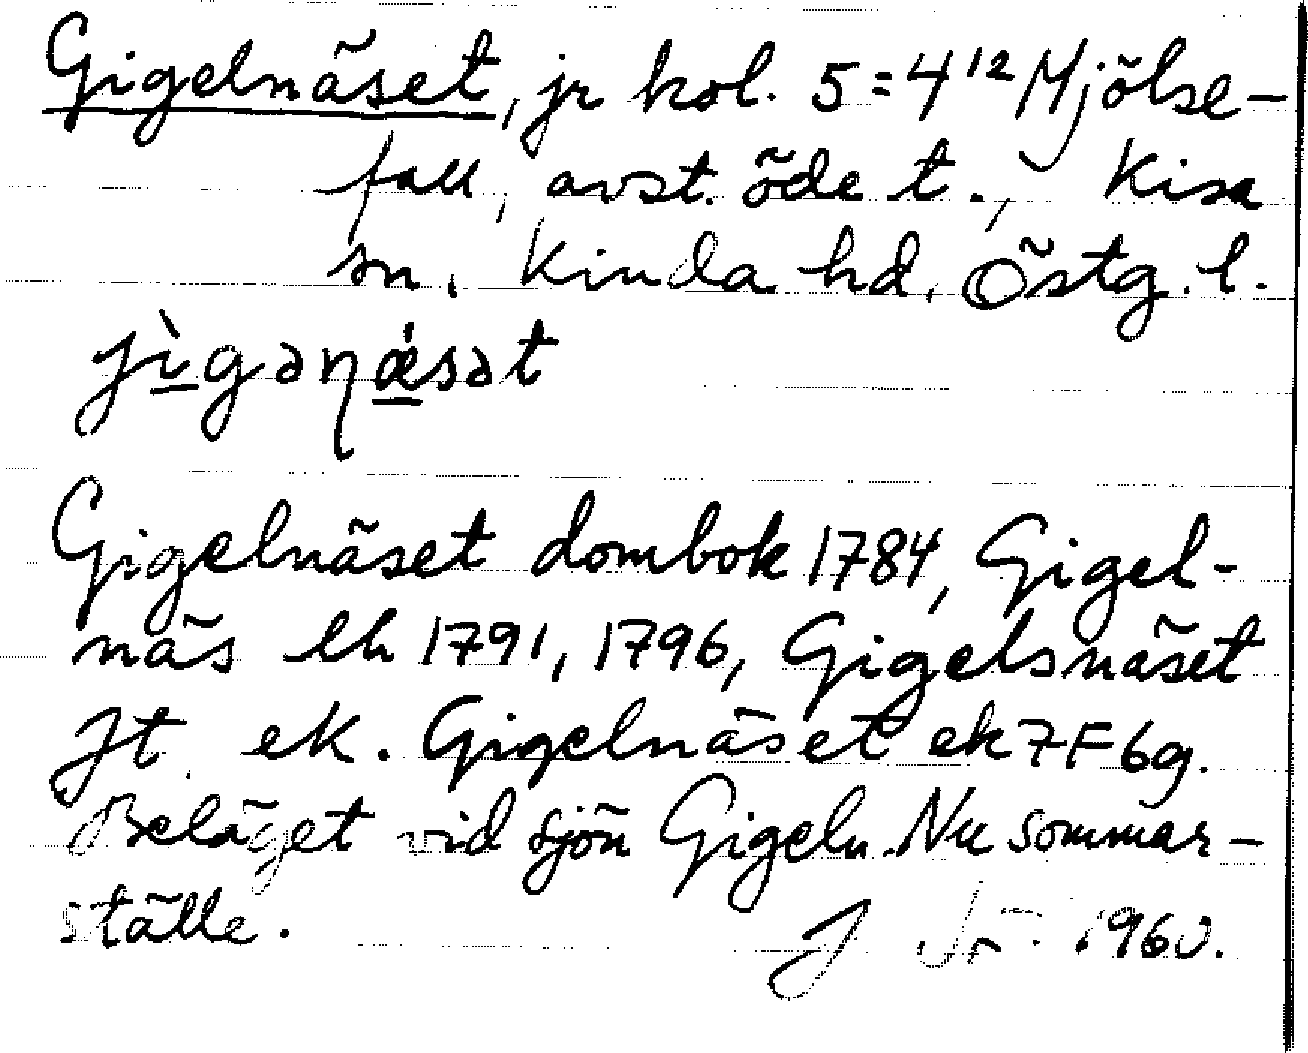 Gigelnäset, jr kol. 5=4¹² Mjölse-
fall, avst. öde t., Kisa
sn. Kinda hd. Östg. l.
jìgəņǽsət
Gigelnäset dombok 1784, Gigel-
näs lh 1791, 1796, Gigelsnäset
Jt ek. Gigelnäset ek 7F6g.
Beläget vid sjön Gigeln. Nu sommar-
ställe.
1960.